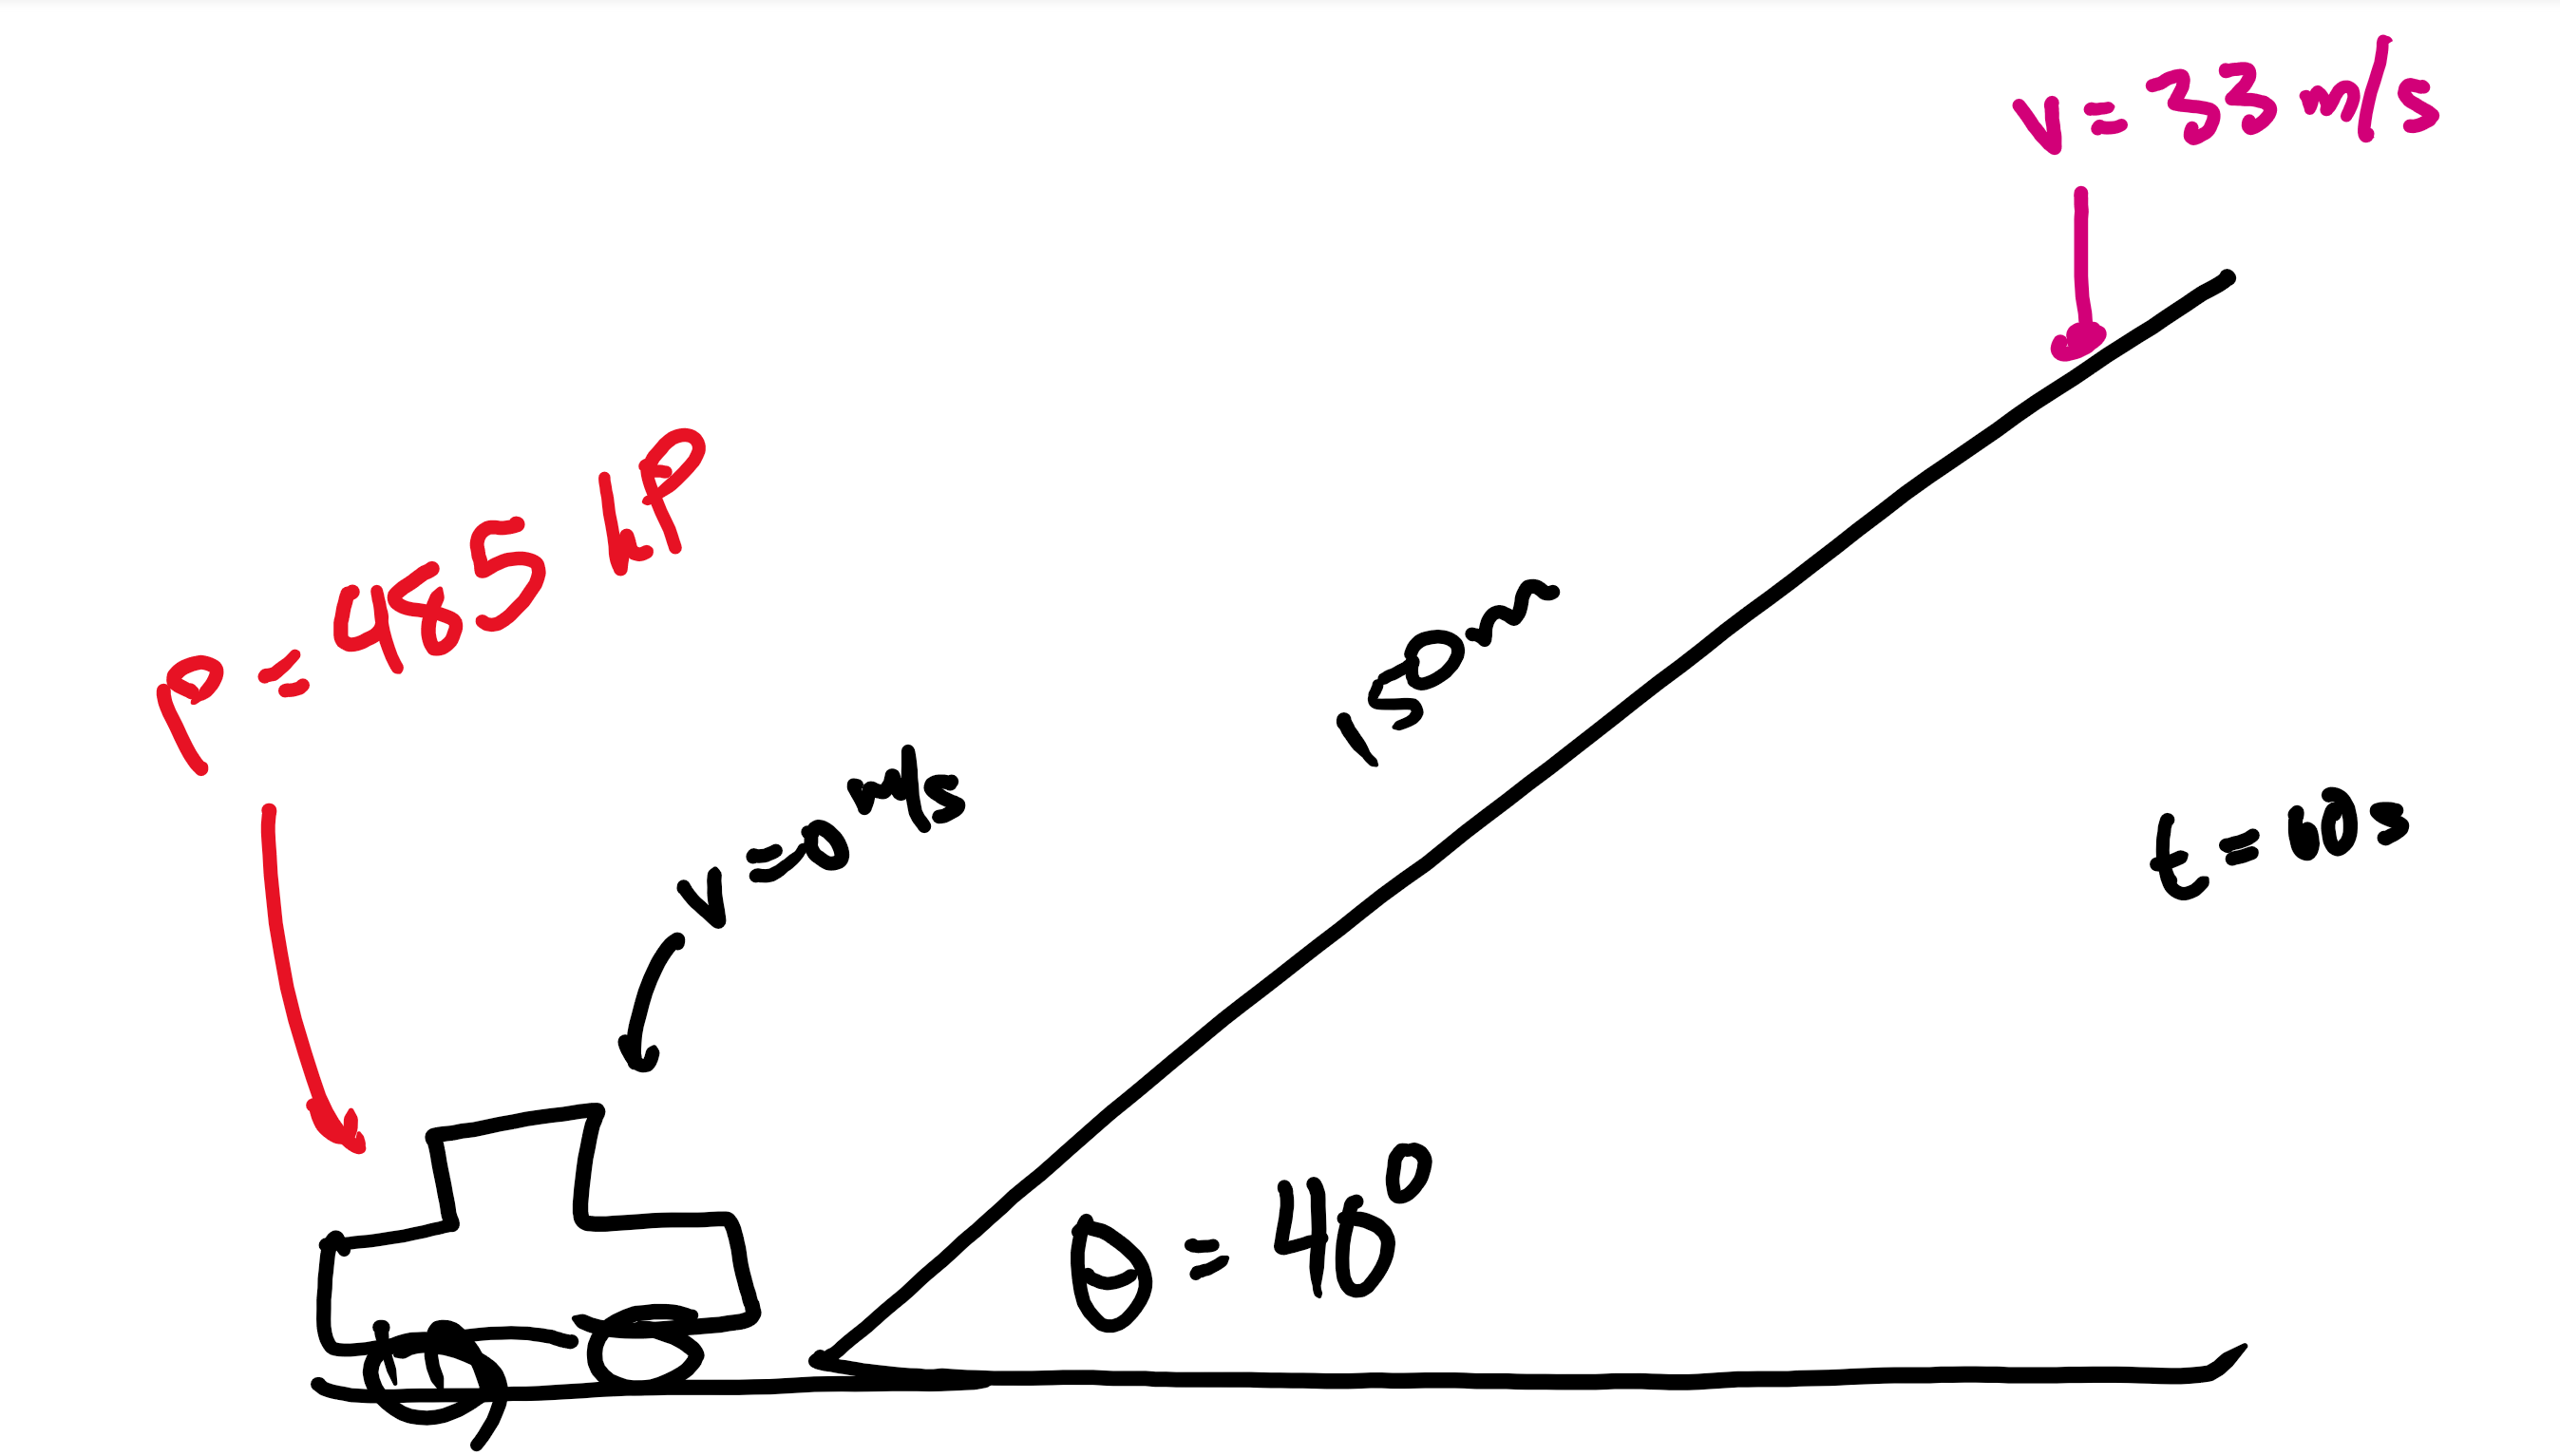 v = 33 m/s
P = 485 hP
150m
v = 0 m/s
t = 60s
θ = 40°